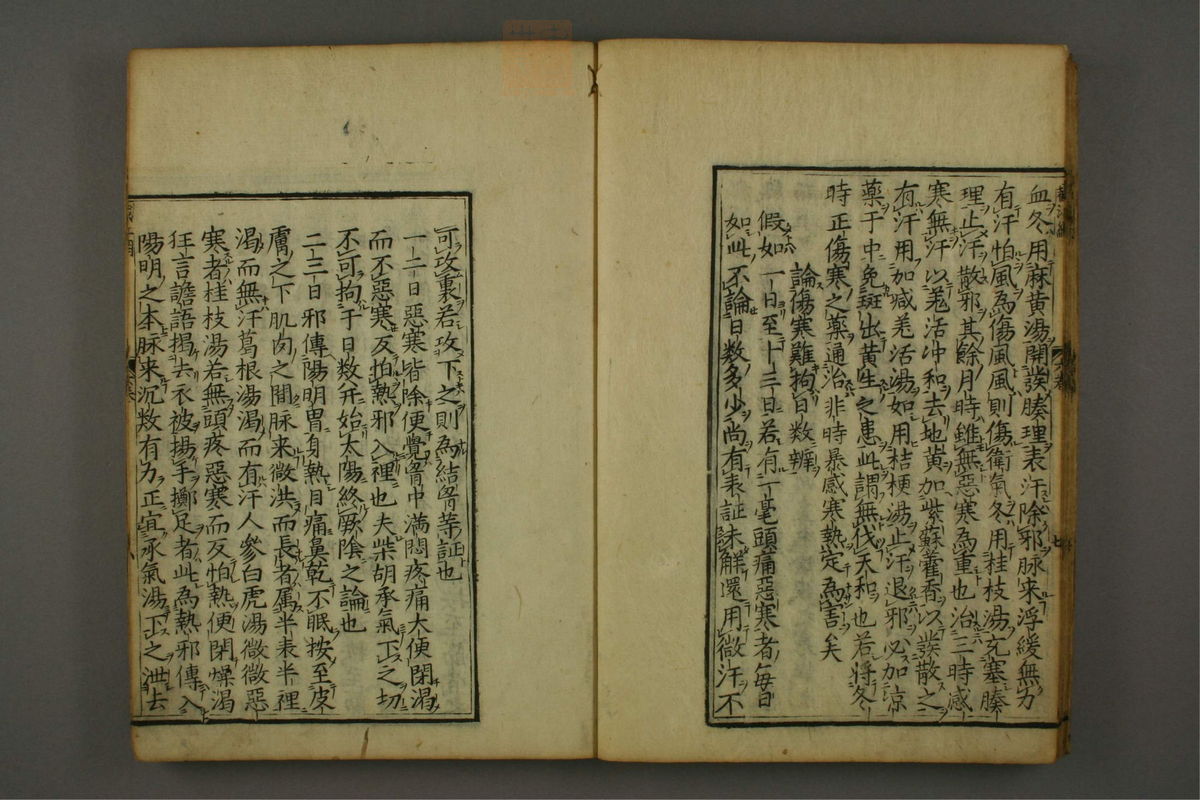 血冬用麻黄湯開発腠理表汗除邪脉来浮緩無力
有汗怕風為傷風風則傷衛氣冬用桂枝湯充塞腠
理止汗散邪其餘月時雖無惡寒為重也治三時感
寒無汗以羗活冲和去地黄加紫蘇藿香以発散之
有汗用加减羗活湯如用桔梗湯止汗退邪必加凉
藥于中免斑出黄生之患此謂無伐天和也若將冬
時正傷寒之藥通治非時暴感寒熱定為害矣
論傷寒難拘日数辨
假如一日至十三日若有一毫頭痛惡寒者毎日
如此不論日数多少尚有表証未解還用微汗不
可攻裏若攻下之則為結胷等証也
一二日惡寒皆除便覺胷中満悶疼痛大便閉渴
而不惡寒反怕熱邪入裡也夫柴胡承氣下之切
不可拘于日数开始太陽終厥陰之論也
二三日邪傳陽明胃身熱目痛鼻乾不眠按至皮
膚之下肌肉之間脉来微洪而長者属半表半裡
渴而無汗葛根湯渴而有汗人参白虎湯微微惡
寒者桂枝湯若無頭疼惡寒而反怕熱便閉燥渴
狂言譫語掲去衣被揚手擲足者此為熱邪傳入
陽明之本脉来沉数有力正宜承氣湯下之泄去